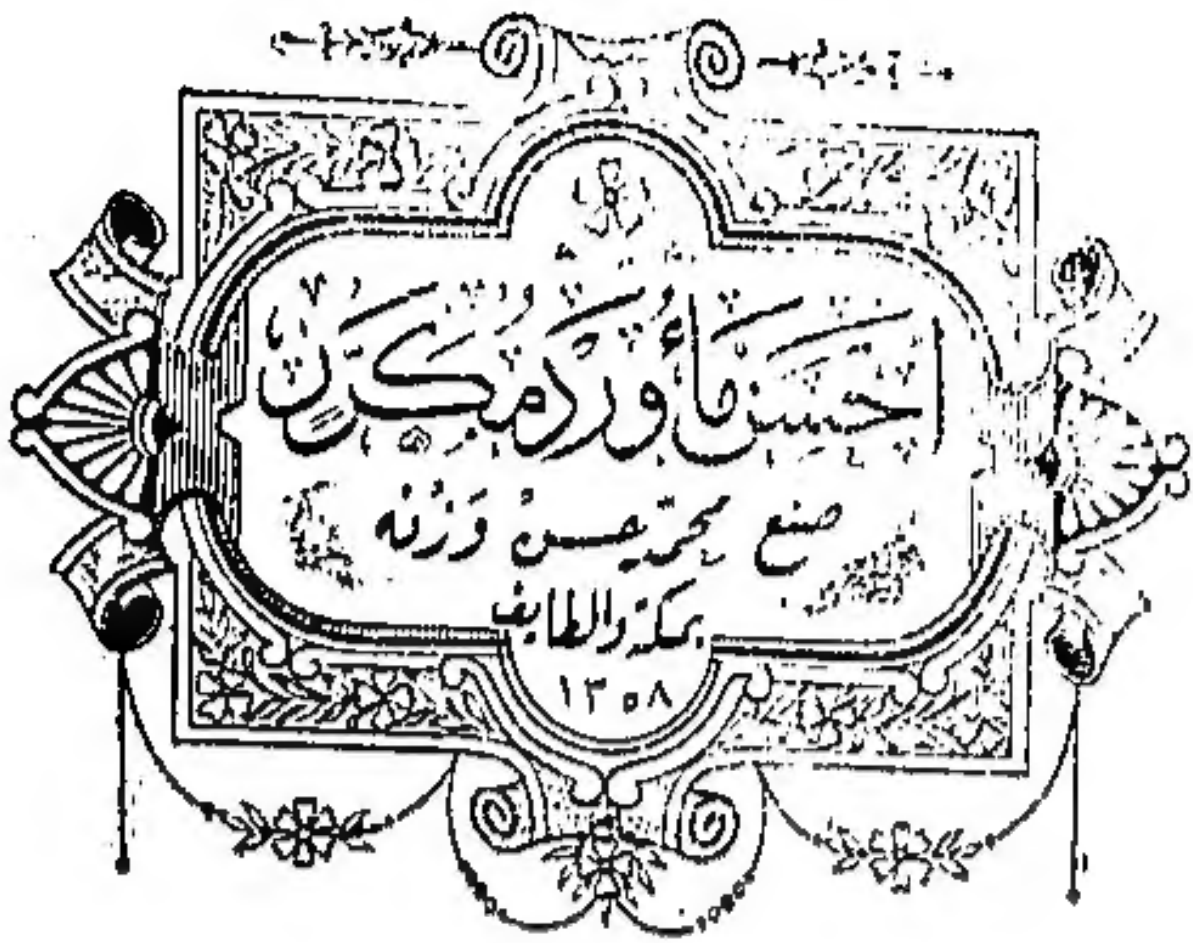 احسن ماء ورد مكرر
صنع محمد حسن وزنه
بمكة والطايف
١٣٥٨